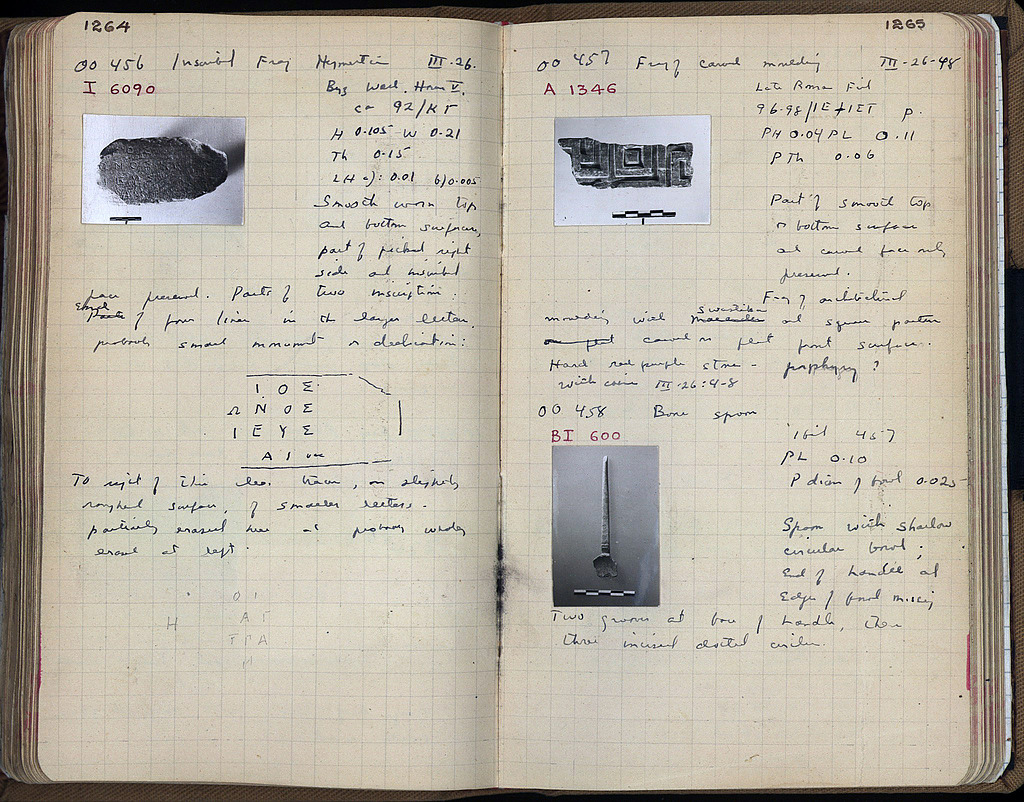 1264
OO 456 Inscribed Frag Hymettian III-26.
I 6090
Byz Well. House V.
ca 92/ΚΓ
H 0.105 W 0.21
Th 0.15
LH a): 0.01 b) 0.005
Smooth worn top
and bottom surfaces,
part of picked right
side and inscribed
face preserved. Parts of two inscriptions:
Ends of four lines in the larger letters.
probably small monument or dedication:
Ι Ο Σ
Ω Ν Ο Σ
Ι Ε Υ Σ
Α Ι vac
To right of this less than, on slightly
roughed surface, of smaller letters.
partially erased here and probably wholly
erased at left.
Ο Ι
Α Γ
Η
Γ Π Α
Η
1265
OO 457 Frag of carved moulding III-26-48
A 1346
Late Roman Fill
96-98/ΙΕ-ΙΣΤ P.
PH 0.04 PL 0.11
P Th 0.06
Part of smooth top
or bottom surface
and carved face only
preserved.
Frag of architectural
moulding with swastika and square pattern
carved on flat front surface.
Hard red purple stone - porphyry?
With coins III-26:4-8
OO 458 Bone spoon
BI 600
Ibid 457
PL 0.10
P diam of bowl 0.025
Spoon with shallow
circular bowl;
End of handle and
Edges of bowl missing
Two grooves at base of handle, then
three incised dotted circles.